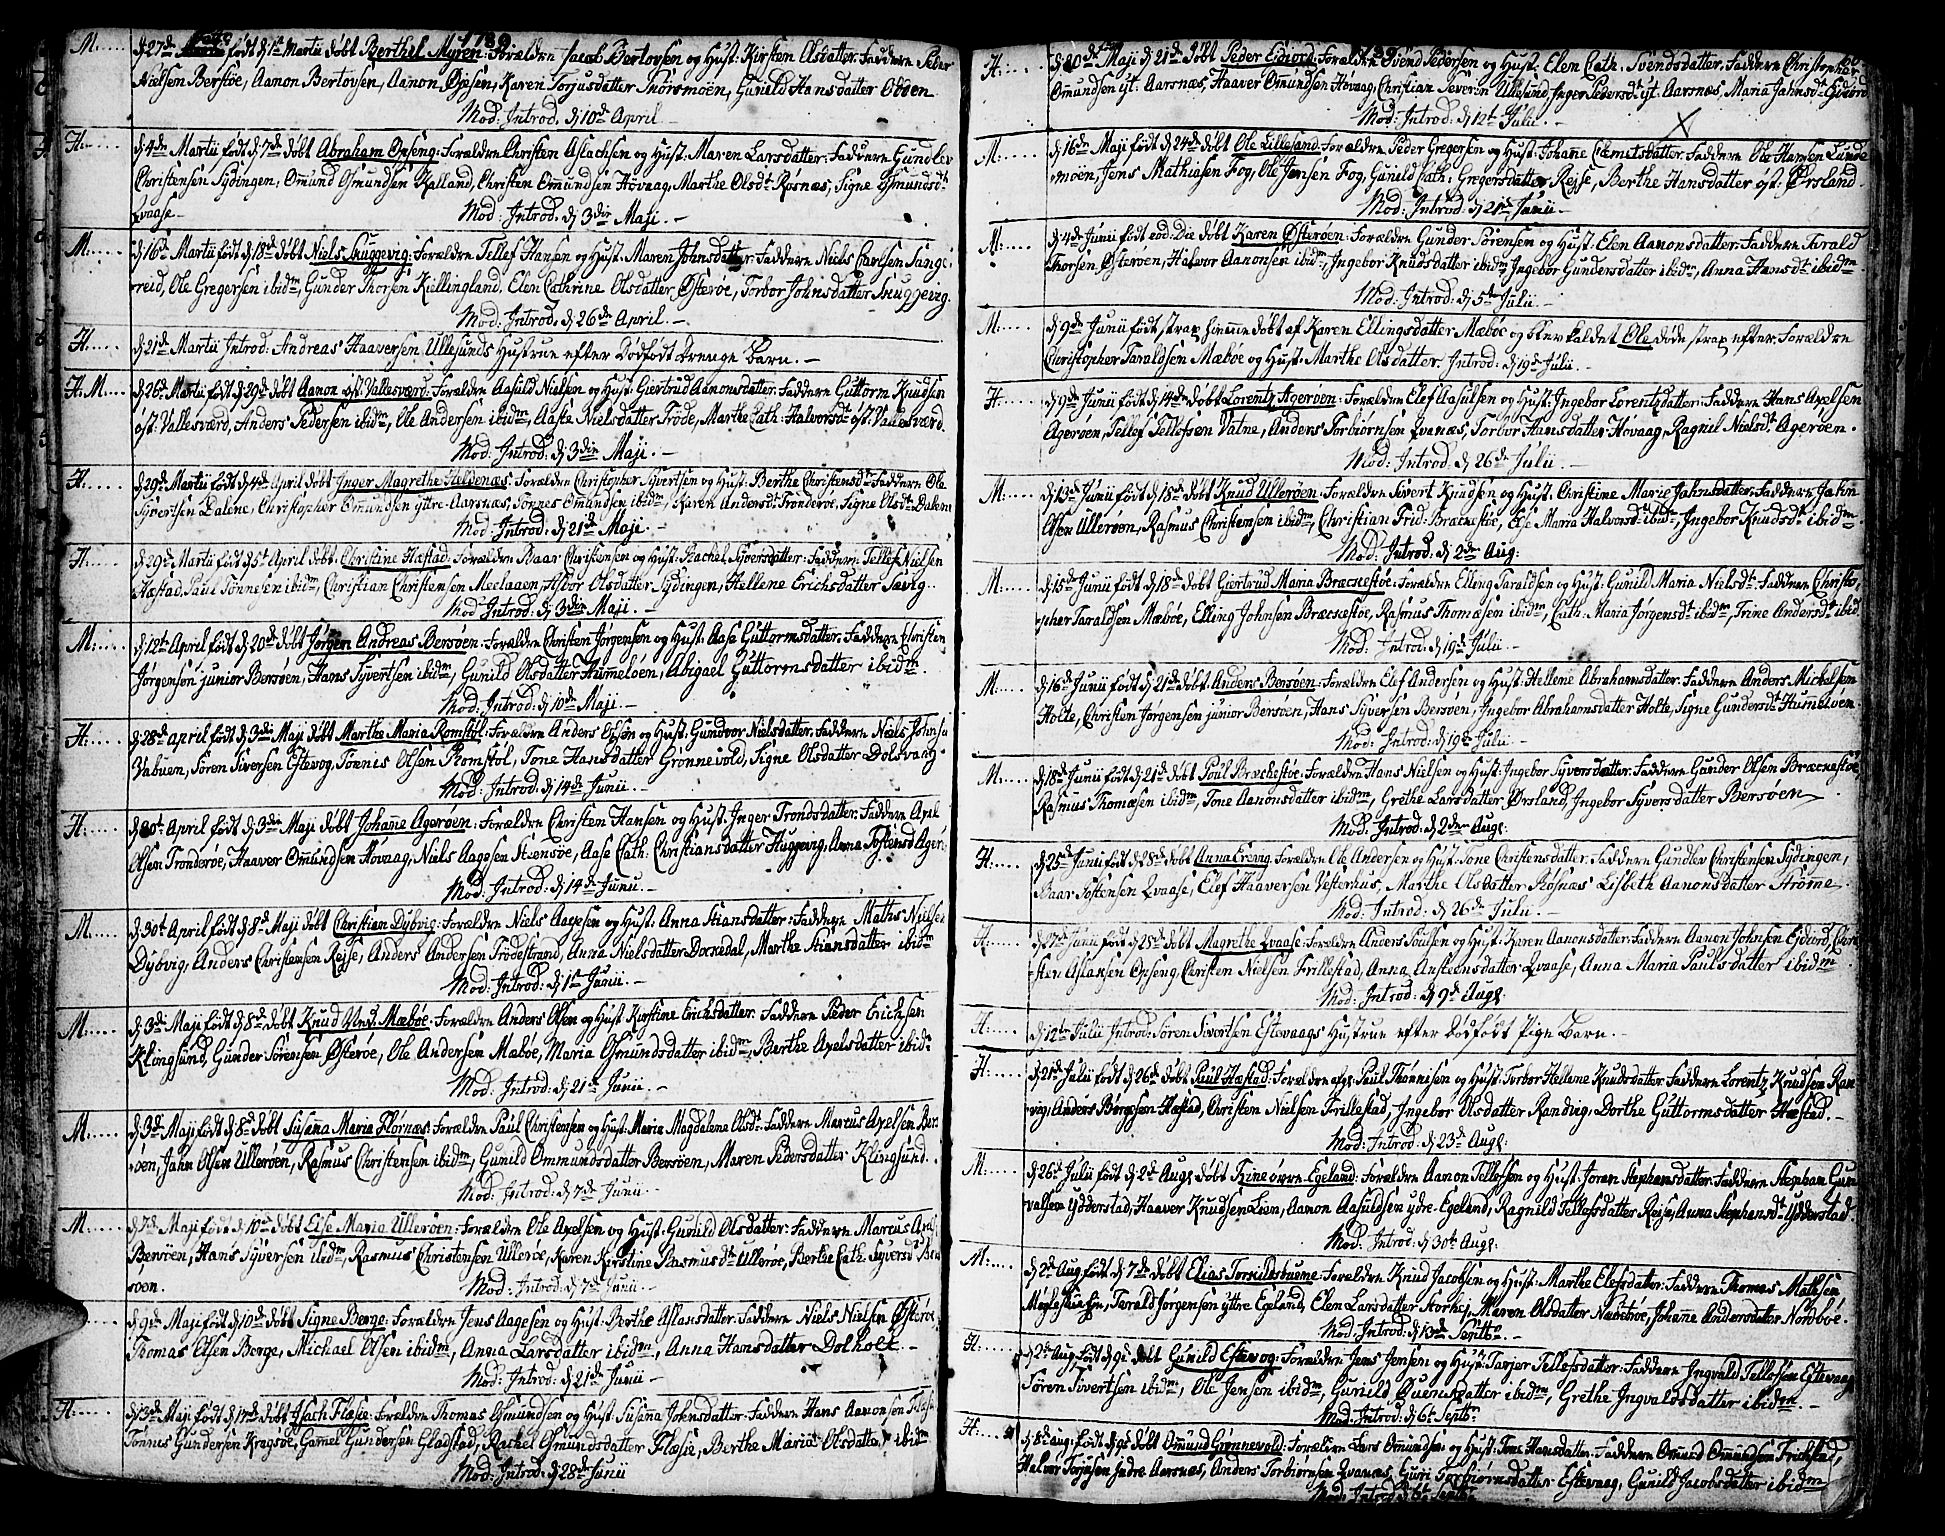 1789
M: d 27de født d 1st Martii døbt Berthel Myren: Forældre Jacob Bertovsen og Hust: Kirsten Olsdatter: Faddere Peder
Nielsen Berstøe, Aanon Bertovsen, Aanon Olesen, Karen Torjusdatter Snørsmoen, Gunild Hansdatter Obben
Mod: Introd. d 10de April
H: d 4de Martii født d 7de døbt Abraham Opseng: Forældre Christen Aslachsen og Hust: Maren Larsdatter: Faddere Gundlev
Christensen Sydingen, Omund Osmundsen Kalland, Christen Omundsen Hovaag, Marthe Olsdt Røsnæs, Signe Osmundsdt
Qvaase
Mod: Introd. d 3die Maji
M: d 16de Martii født d 18de døbt Niels Snuggevig: Forældre Tellef Hansen og Hust: Maren Johnsdatter: Faddere Niels Carlsen Sange
reid, Ole Gregersen ibidm, Gunder Thorsen Kiellingland, Elen Cathrine Olsdatter Østerøe, Torbor Johnsdatter Snuggevig.
Mod: Introd. d 26de April
H: d 21de Martii Introd: Andreas Haaversen Ullesunds Hustrue efter Dødfødt Drenge Barn.
H.M: d 26de Martii født d 29de døbt Aanon øst: Vallesværd: Forældre Aasuld Nielsen og Hust: Giertrud Aanonsdatter: Faddere Guttorm Knudsen
øst: Vallesværd, Anders Pedersen ibidm, Ole Andersen ibidm, Aaste Nielsdatter Trøde, Marthe Cath: Halvorsdt øst: Vallesværd.
Mod: Introd: d 3die Maji
H: d 29de Martii født d 4de April døbt Inger Magrethe Heldenæs: Forældre Christopher Syvertsen og Hust: Berthe Christensdt: Faddere Ole
Syvertsen Dalene, Christopher Omundsen yttre Aarsnæs, Tønnes Omundsen ibidm, Karen Andersdt Tronderøe, Signe Olsdt Dalene
Mod: Introd: d 21de Maji
H: d 29de Martii født d 5te April døbt Christine Hæstad: Forældre Baar Christensen og Hust: Rachel Syversdatter: Faddere Tellef Nielsen
Hæstad, Paul Tønnesen ibidm, Christian Christensen Meelaaen, Asbor Olsdatter Sydingen, Hellene Erichsdatter Sævig
Mod: Introd: d 3die Maji
M: d 12te April født d 20de døbt Jørgen Andreas Bersøen: Forældre Christen Jørgensen og Hust: Aase Guttormsdatter: Faddere Christen
Jørgensøn junior Bersøen, Hans Syvertsen ibidm, Gunild Olsdatter Hummeløen, Abigael Guttormsdatter ibidm
Mod: Introd: d 10de Maji
H: d 28de April født d 3die Maji døbt Marthe Maria Romstøl: Forældre Anders Olsøn og Hust: Gundvor Nielsdatter: Faddere Niels Johnsen
Vabuen, Søren Siversen Estevog, Tønnis Olsen Romstøl, Tone Hansdatter Grønnevold, Signe Olsdatter Dolsvaag
Mod: Introd: d 14de Junii
H: April født d 3die Maji døbt Johanne Agerøen: Forældre Christen Hansen og Hust: Inger Trondsdatter: Faddere Axel
Olsen Tronderøe, Haaver Omundsen Hovaag, Niels Aagesen Steensøe, Aase Cath: Christiansdatter Huggevig, Anna Jostensd Ager.
Mod: Introd: d 14de Junii
M: d 30te April født d 8de Maji døbt Christian Dybvig: Forældre Niels Aagesen og Hust: Anna Stiansdatter: Faddere Maths: Nielsen
Dybvig, Anders Christensen Rejse, Anders Andersen Trødestrand, Anna Nielsdatter Dockedal, Marthe Stiansdatter ibidm
Mod: Introd: d 1ste Junii
M: d 3de Maji født d 8de døbt Knud Ved. Mæbøe: Forældre Anders Olsen og Hust: Kirstine Erichsdatter: Faddere Peder Erichsen
Klongsund, Gunder Sørensen Østerøe, Ole Andersen Mæbøe, Maria Osmundsdatter ibidm, Berthe Axelsdatter ibidm
Mod: Introd: d 21de Junii
M: d 3de Maji født d 8de døbt Susana Maria Flørnæs: Forældre Paul Christensen og Hust: Maria Magdalene Olsdt: Faddere Marcus Axelsen Bers
øen, Jahn Olsen Ullerøen, Rasmus Christensen ibidm, Gunild Ommundsdatter Bersøen, Maren Pedersdatter Klingsund.
Mod: Introd: d 7de Junii
M: d 7de Maji født d 10de døbt Else Maria Ullerøen: Forældre Ole Axelsen og Hust: Gunild Olsdatter: Faddere Marcus Axels
Bersøen, Hans Syversen ibidm, Rasmus Christensen Ullerøe, Karen Kirstine Rasmusdt Ullerøe, Berthe Cath: Syversdt Ber
søen.
Mod: Introd: d 7de Junii
d 9de Maji født d 10de døbt Signe Berge: Forældre Jens Aagesen og Hust: Berthe Aslansdatter: Faddere Niels Nielsen Østerøe
Thomas Olsen Berge, Michael Olsen ibidm, Anna Larsdatter ibidm, Anna Hansdatter Dolholt
Mod: Introd: d 21de Junii
H: d 13de Maji født d 17de døbt Isach Flæsie: Forældre Thomas Osmundsen og Hust: Susana Johnsdatter: Faddere Hans Aanonsen Flæsie
Tønnis Gundersen Kragsøe, Gamel Gundersen Gladstad, Rachel Osmundsdatter Flæsie, Berthe Maria Olsdatter ibidm
Mod: Introd: d 28de Junii
1789
H: Maji d 21de døbt Peder Eidiord: Forældre Svend Pedersen og Hust: Elen Cath: Svendsdatter: Faddere Christopher
Omundsen yt: Aarsnæs, Haaver Omundsen Hovaag, Christian Severin Ullesund, Inger Pedersdt yt: Aarsnæs, Maria Jahnsdt Eidiord
Mod: Introd: d 12te Julii
X
M: d 16de Maji født d 24de døbt Ole Lillesand: Forældre Peder Gregersen og Hust: Johanne Clemetsdatter: Faddere Ole Hansen Lunde
moen, Jens Mathiasen Fog, Ole Jensen Fog, Gunild Cath: Gregersdatter Rejse, Berthe Hansdatter øst: Ørsland
Mod: Introd: d 21de Junii
M: d 4de Junii født eod: Die døbt Karen Østerøen: Forældre Gunder Sørensen og Hust: Elen Aanonsdatter: Faddere Tarald
Thorsen Østerøen, Halvor Aanonsen ibidm, Ingebor Knudsdatter ibidm, Ingebor Gundersdatter ibidm, Anna Hansdt ibidm
Mod: Introd: d 5te Julii
M: d 9de Junii født strax hiemme døbt af Karen Ellingsdatter Mæbøe og blev kaldet Ole døde strax efter: Forældre
Christopher Taraldsen Mæbøe og Hust: Marthe Olsdatter. Introd: d 19de Julii.
H: d 9de Junii født d 14de døbt Lorentz Agerøen: Forældre Elef Aasulsen og Hust: Ingebor Lorentzdatter: Faddere Hans Axelsen
Agerøen, Tellef Tellefsen Vatne, Anders Torbiørnsen Qvanæs, Torbor Hansdatter Hovaag, Ragnil Nielsdt Agerøen.
Mod: Introd: d 26de Julii
M: d 13de Junii født d 18de døbt Knud Ullerøen: Forældre Sivert Knudsen og Hust: Christine Marie Jahnsdatter: Faddere Jahn
Olsen Ullerøen, Rasmus Christensen ibidm, Christian Frid: Bræckestøe, Else Maria Halvorsdt ibidm, Ingebor Knudsdt ibidm.
Mod: Introd: d 2den Aug:
M: d 15de Junii født d 18de døbt Giertrud Maria Bræckestøe: Forældre Elling Taraldsen og Hust: Gunild Maria Nielsdt: Faddere Christo,
pher Taraldsen Mæbøe, Elling Johnsen Bræckestøe, Rasmus Thomasen ibidm, Cath: Maria Jørgensdt ibidm, Trine Andersdt ibid
Mod: Introd: d 19de Julii
M: d 16de Junii født d 21de døbt Anders Bersøen: Forældre Elef Andersen og Hust: Hellene Abrahamsdatter: Faddere Anders Mickelsen
Holte, Christen Jørgensen junior Bersøen, Hans Syversen Bersøen, Ingebor Abrahamsdatter Holte, Signe Gundersdt Humeløen
Mod: Introd: d 19de Julii
M: d 18de Junii født d 21de døbt Poul Bræckestøe: Forældre Hans Nielsen og Hust: Ingebor Syversdatter: Faddere Gunder Olsen Bræckestøe
Rasmus Thomæsen ibidm, Tone Aanonsdatter ibidm, Grethe Larsdatter Ørsland, Ingebor Syversdatter Bersøen
Mod: Introd: d 2den Augs:
H: d 25de Junii født d 28de døbt Anna Erevig: Forældre Ole Andersen og Hust: Tone Christensdatter: Faddere Gundlev Christensen Sydingen,
Baar Jostensen Qvaase, Elef Haaversen Vesterhus, Marthe Olsdatter Røsnæs Lisbeth Aanonsdatter Strømme
Mod: Introd: d 26de Julii
H: d 27de Junii født d 28de døbt Magrethe Qvaase: Forældre Anders Poulsen og Hust: Karen Aanonsdatter: Faddere Aanon Johnsen Eidiord, Chri
sten Aslaksen Opseng, Christen Nielsen Frillestad, Anna Ansteensdatter Qvaase, Anna Maria Paulsdatter ibidm
Mod: Introd: d 9de Augs:
H: d 12te Julii Introd: Søren Sivertsen Estevaags Hustrue efter Dødfødt Pige Barn.
H: d 21de Julii født d 26de døbt Paul Hæstad: Forældre afg: Paul Thønnisen og Hust: Torbor Hellene Knudsdatter: Faddere Lorentz Knudsen Ran
vig, Anders Børgesen Hæstad, Christen Nielsen Frillestad, Ingebor Olsdatter Randvig, Dorthe Guttormsdatter Hæstad.
Mod: Introd: d 23de Augs:
M: d 26de Julii født d 2de Augs døbt Trine øvre Egeland: Forældre Aanon Tellefsen og Hust: Joran Stephansdatter: Faddere Stephan Gun
valsen Ydderstad, Haaver Knudsen Lien, Aanon Aasuldsen ydre Egeland, Ragnild Tellefsdatter Rejse, Anna Stephansdt Ydderstad.
Mod: Introd: d 30te Augs:
M: d 2de Aug. født d 7de døbt Elias Torsildsbueme: Forældre Knud Jacobsen og Hust: Marthe Elefsdatter: Faddere Thomas Mathsen
Møglestue, Tarald Jørgensen yttre Egeland, Elen Larsdatter Storhej, Maren Olsdatter Næbstøe, Johanne Andersdatter Nordbøe.
Mod: Introd: d 13de Septbr.
H: d 2de Aug. født d 9de døbt Gunild Estevog: Forældre Jens Jensen og Hust: Tarjer Tellefsdatter: Faddere Ingvald Tellefsen Estevaag
Søren Sivertsen ibidm, Ole Jensen ibidm, Gunild datter ibidm, Grethe Ingvaldsdatter ibidm
Mod: Introd: d 6te Septbr
H: d 8de Aug: født d 9de døbt Omund Grønnevold: Forældre Lars Omundsen og Hust: Tone Hansdatter: Faddere Omund Omundsen Frillestad,
Halvor Torjusen Indre Aarsnæs, Anders Torbiørnsen Qvanæs, Guri Torbiørnsdatter Estevaag, Gunild Jacobsdatter ibidm
Mod: Introd: d 6te Septbr